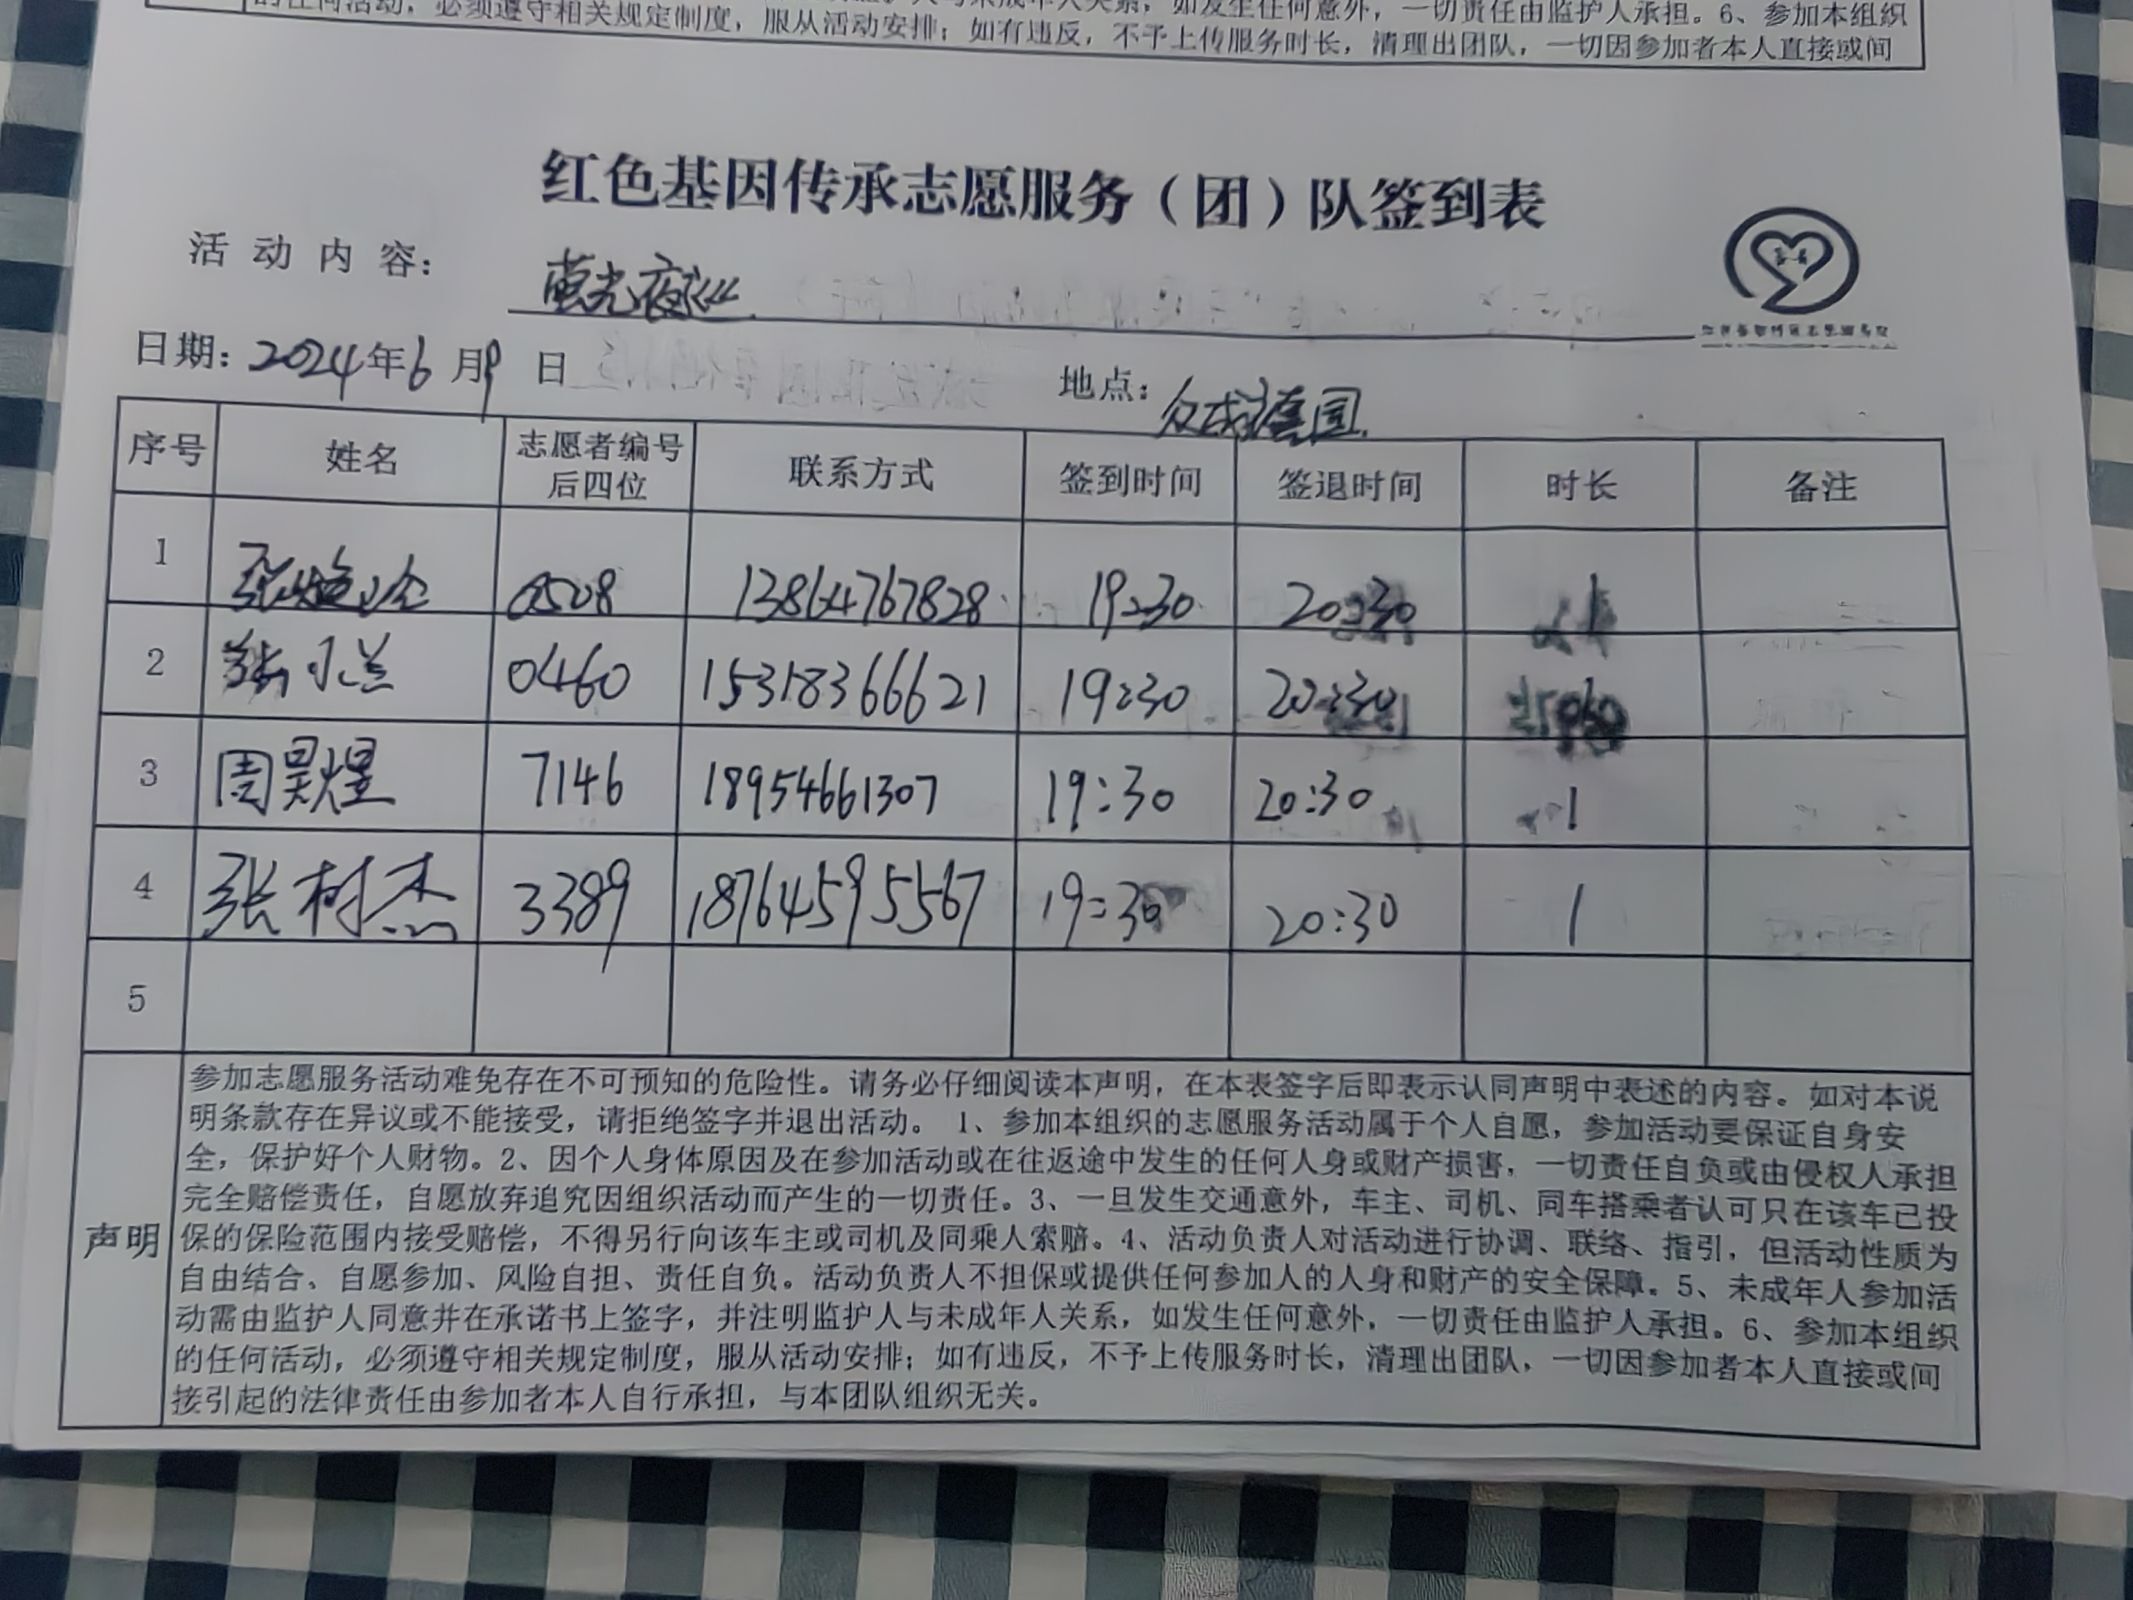 的任何活动，必须遵守相关规定制度，服从活动安排；如有违反，不予上传服务时长，清理出团队，一切因参加者本人直接或间
红色基因传承志愿服务（团）队签到表
活动内容：萤光夜巡
日期：2024年6月9日 地点：众成德国
序号 姓名 志愿者编号后四位 联系方式 签到时间 签退时间 时长 备注
1 0508 13864767828 19:30 20:30
2 0460 15318366621 19:30 20:30
3 周昊煜 7146 18954661307 19:30 20:30 1
4 张树杰 3389 18764595567 19:30 20:30 1
5
声明
参加志愿服务活动难免存在不可预知的危险性。请务必仔细阅读本声明，在本表签字后即表示认同声明中表述的内容。如对本说
明条款存在异议或不能接受，请拒绝签字并退出活动。 1、参加本组织的志愿服务活动属于个人自愿，参加活动要保证自身安
全，保护好个人财物。2、因个人身体原因及在参加活动或在往返途中发生的任何人身或财产损害，一切责任自负或由侵权人承担
完全赔偿责任，自愿放弃追究因组织活动而产生的一切责任。3、一旦发生交通意外，车主、司机、同车搭乘者认可只在该车已投
保的保险范围内接受赔偿，不得另行向该车主或司机及同乘人索赔。4、活动负责人对活动进行协调、联络、指引，但活动性质为
自由结合、自愿参加、风险自担、责任自负。活动负责人不担保或提供任何参加人的人身和财产的安全保障。5、未成年人参加活
动需由监护人同意并在承诺书上签字，并注明监护人与未成年人关系，如发生任何意外，一切责任由监护人承担。6、参加本组织
的任何活动，必须遵守相关规定制度，服从活动安排；如有违反，不予上传服务时长，清理出团队，一切因参加者本人直接或间
接引起的法律责任由参加者本人自行承担，与本团队组织无关。